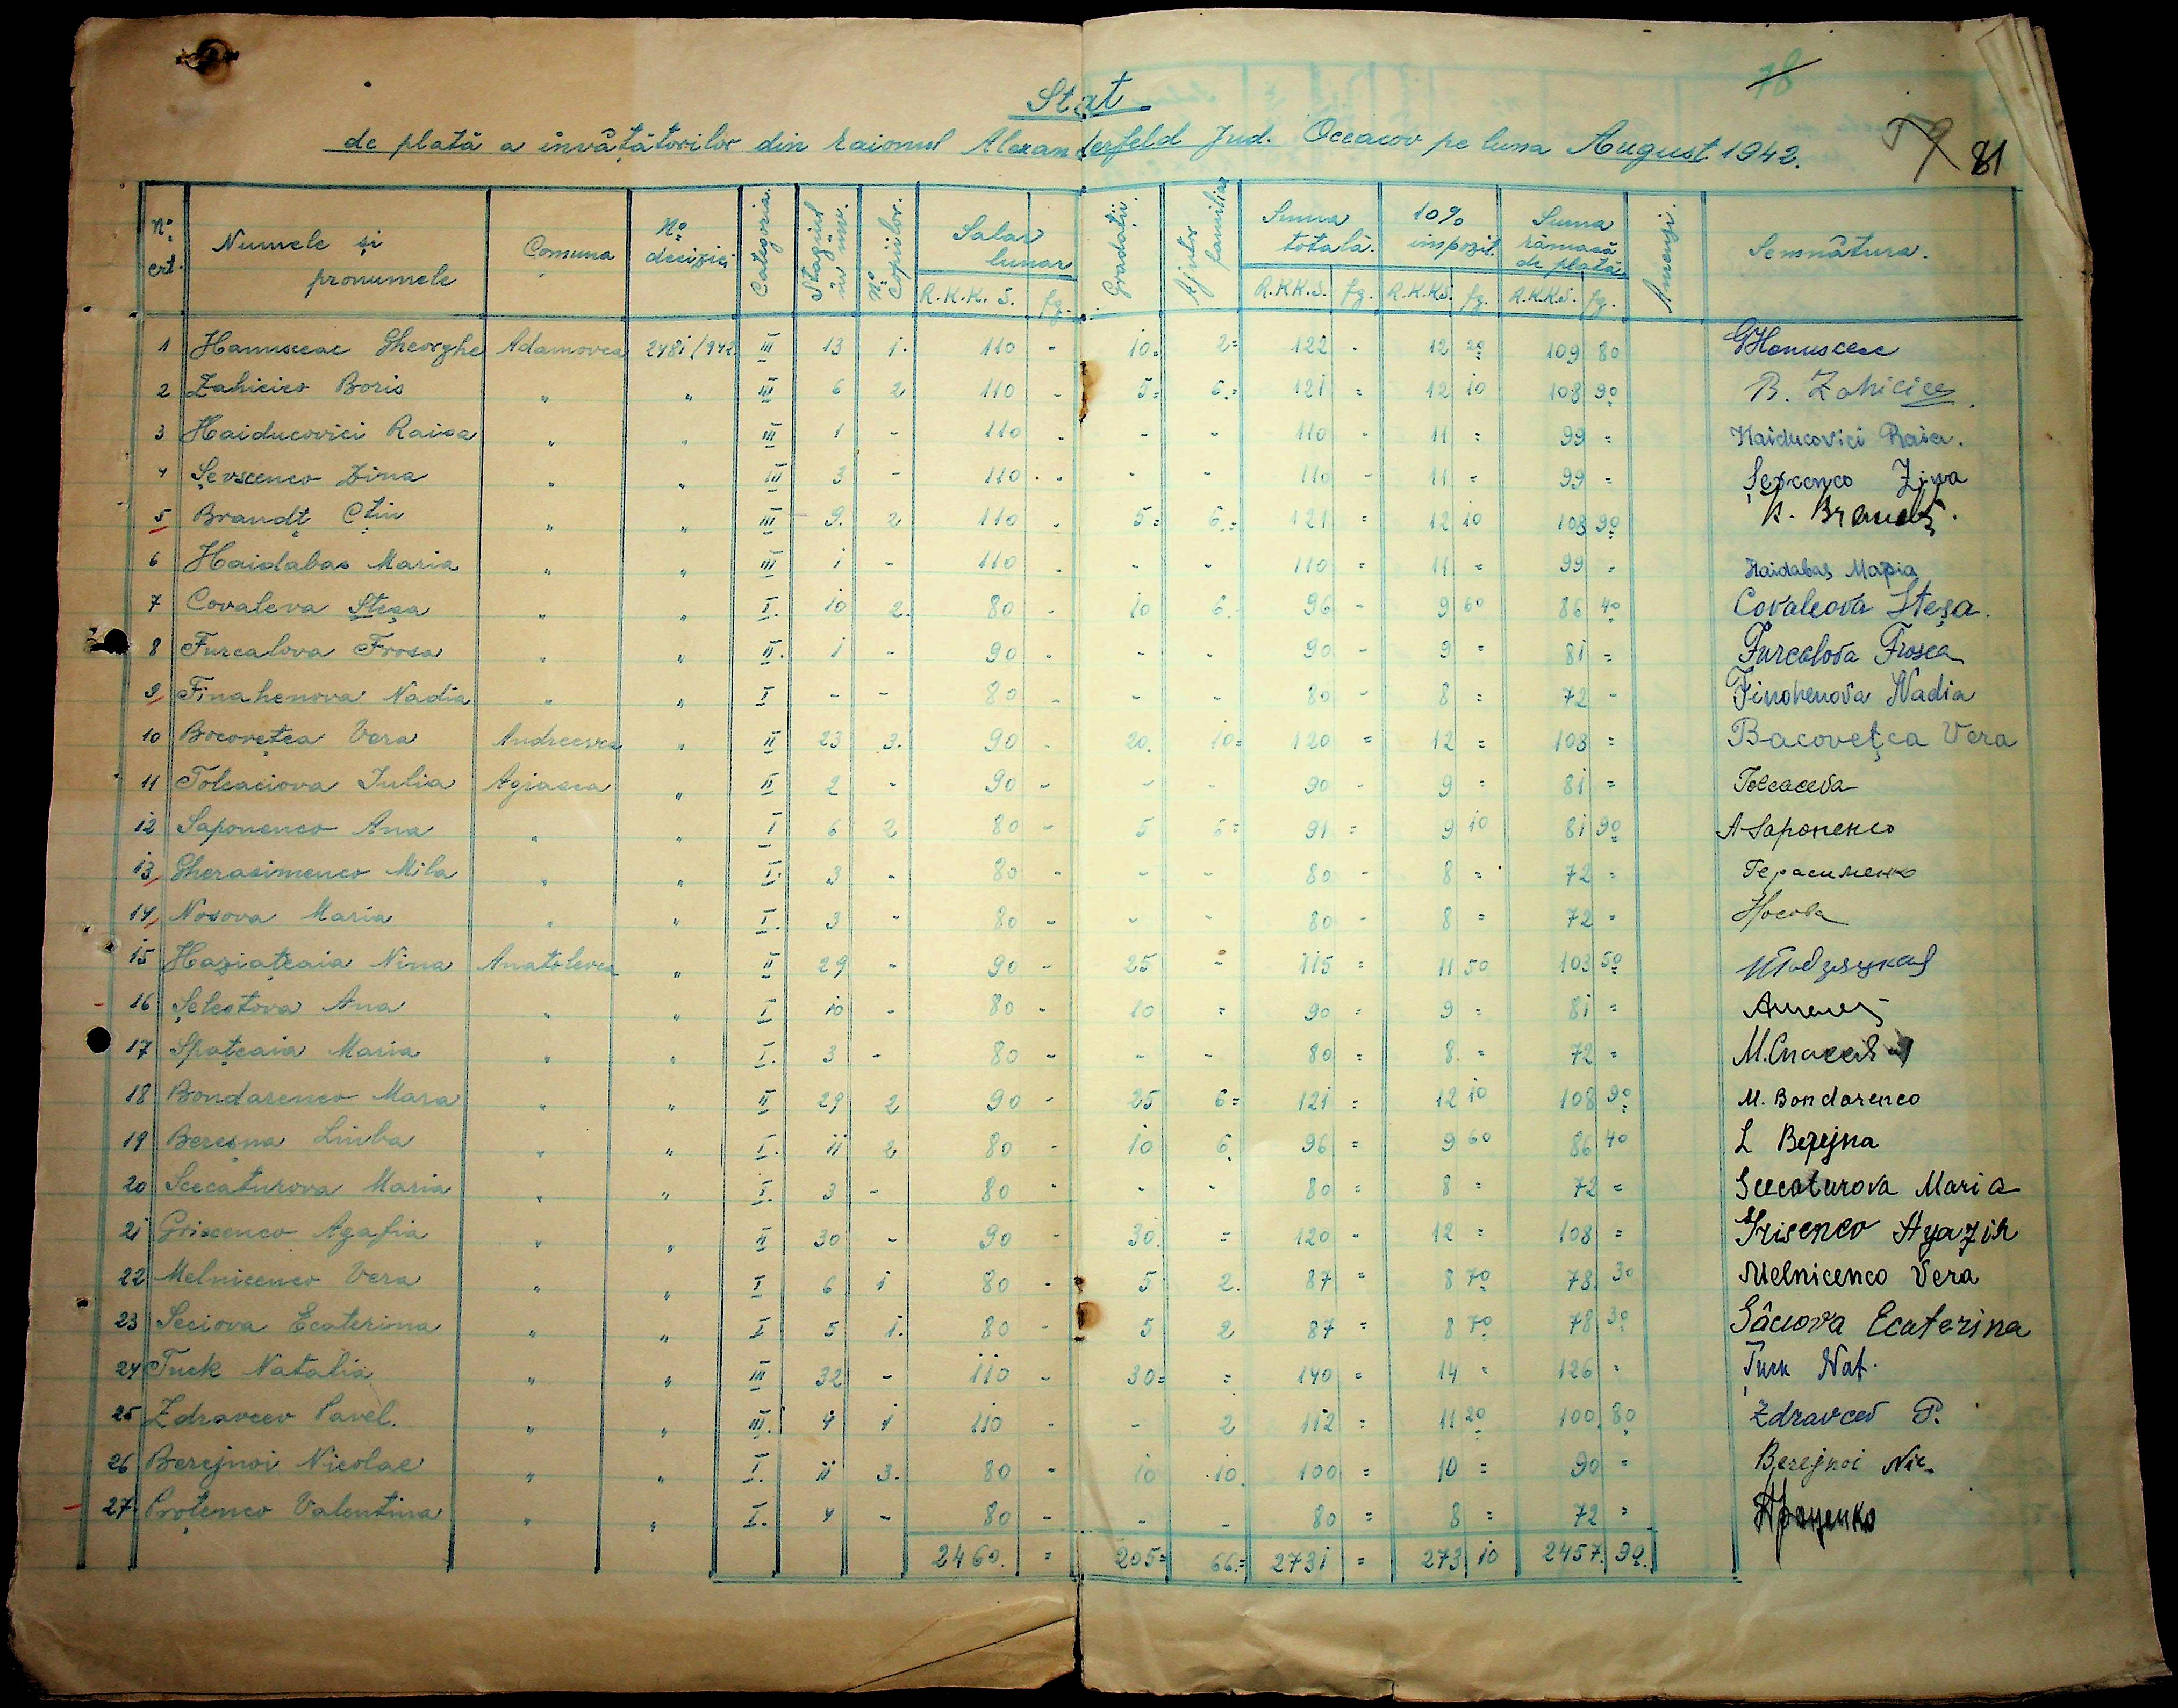 78
Stat
de plată a învățătorilor din raionul Alexanderfeld Jud. Oceacov pe luna August 1942.
59 81
No. crt. Numele și pronumele Comuna No. deciziei Categoria. Stagiul în înv. No. Copiilor. Salar lunar R.K.K.S. fg. Gradatii. Ajutor familiar Suma totală. R.K.K.S. fg. 10% impozit. R.K.K.S. fg. Suma rămasă de plată R.K.K.S. fg. Amenzi. Semnătura.
1 Hanusceac Gheorghe Adamovca 2481/942 III 13 1. 110 - 10= 2= 122 - 12 20 109 80 GHanusceac
2 Zahicico Boris " " III 6 2 110 - 5= 6.= 121 = 12 10 108 90 B. Zahicico
3 Haiducovici Raisa " " III 1 - 110 - - - 110 - 11 = 99 = Haiducovici Raisa.
4 Șevscenco Zina " " III 3 - 110 - - - 110 - 11 = 99 = Șevcenco Zina
5 Brandț Ctin " " III 9. 2 110 - 5= 6.= 121 = 12 10 108 90 K. Brandt.
6 Haidabas Maria " " III 1 - 110 - - - 110 = 11 = 99 = Haidabas Мария
7 Covaleva Steșa " " I. 10 2. 80 - 10 6. 96 - 9 60 86 40 Covaleova Steșa.
8 Furcalova Frosa " " II. 1 - 90 - - - 90 - 9 = 81 = Furcalova Frosea
9 Finahenova Nadia " " I - - 80 - - - 80 - 8 = 72 - Finohenova Nadia
10 Bocovețca Vera Andreevca " II 23 3. 90 - 20. 10= 120 = 12 = 108 = Bacovețca Vera
11 Tolcaciova Iulia Agiasca " II 2 - 90 - - - 90 - 9 = 81 = Tolcaceva
12 Saponenco Ana " " I 6 2 80 - 5 6= 91 = 9 10 81 90 A Saponenco
13 Gherasimenco Mila " " I. 3 - 80 - - - 80 - 8 = 72 = Герасименко
14 Nosova Maria " " I. 3 - 80 - - - 80 - 8 = 72 = Носова
15 Haziațcaia Nina Anatolevca " II 29 - 90 - 25 - 115 = 11 50 103 50
16 Șelestova Ana " " I 10 - 80 - 10 = 90 = 9 = 81 =
17 Spațcaia Maria " " I. 3 - 80 - - - 80 = 8. = 72 = М.Спасск
18 Bondarenco Mara " " II 29 2 90 - 25 6= 121 = 12 10 108 90 M. Bondarenco
19 Beresna Liuba " " I. 11 2 80 - 10 6. 96 = 9 60 86 40 L Berejna
20 Scecaturova Maria " " I. 3 - 80 - - - 80 = 8 = 72 = Scecaturova Maria
21 Griscenco Agafia " " II 30 - 90 - 30. = 120 - 12 = 108 = Grisenco
22 Melnicenco Vera " " I 6 1 80 - 5 2. 87 = 8 70 78. 30 Melnicenco Vera
23 Seciova Ecaterina " " I 5 1. 80 - 5 2 87 = 8 70 78 30 Sâciova Ecaterina
24 Tuck Natalia " " III 32 - 110 - 30= = 140 = 14 = 126 = Țuck Nat.
25 Zdravcev Pavel. " " III. 4 1 110 - - 2 112 = 11 20 100. 80 Zdravcev P.
26 Berejnoi Nicolae " " I. 11 3. 80 - 10 10. 100 = 10 = 90 = Berejnoi Nic.
27. Proțenco Valentina " " I. 4 - 80 - - - 80 = 8 = 72 = Проценко
2460. = 205= 66.= 2731 = 273 10 2457. 90.